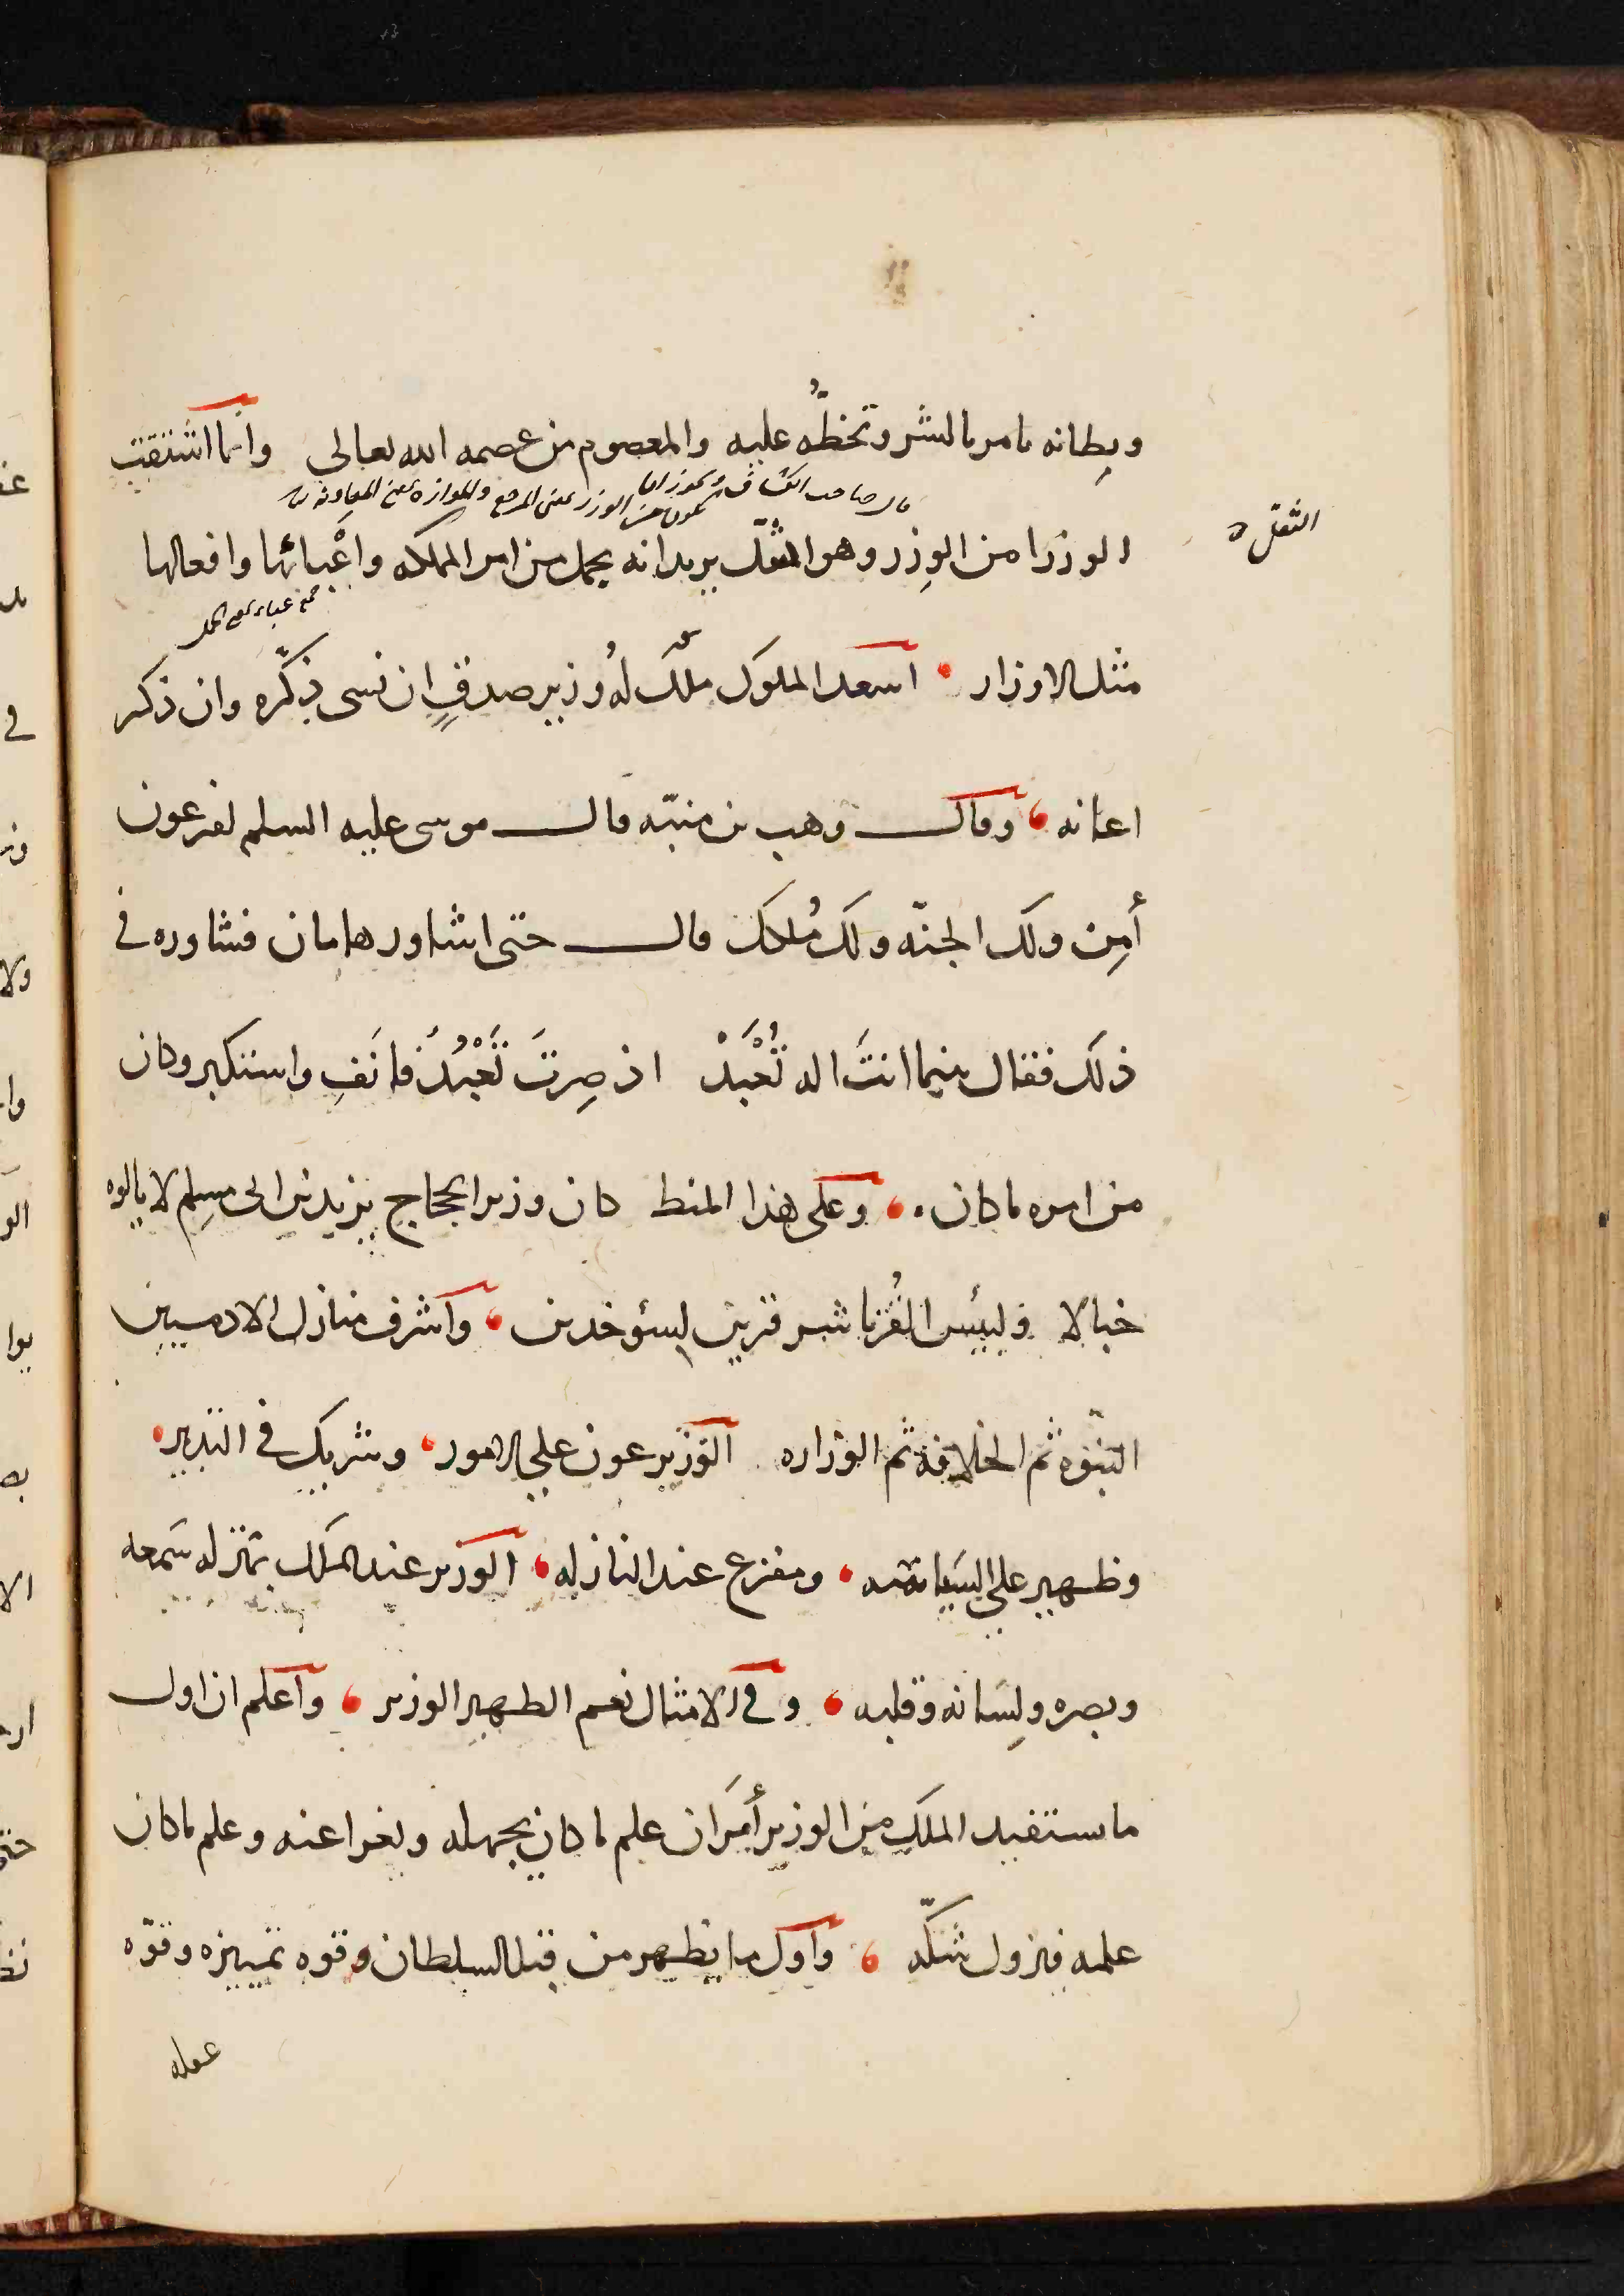 وبطانه تامر بالشر وتحظّه عليه والمعصوم من عصمه الله تعالى وانما اشتقت
قال صاحب الكشاف ويجوز ان
يكون من الوزر بمعنى المرجع والموازره بمعنى المعاونه
الوزرا من الوِزر وهو الثقل يريد انه يحمل من امر المملكه واعْبائها وافعالها
الثقل
جمع عباء بمعنى الحمل
مثل الاوزار اسعد الملوك ملكٌ لهُ وزير صدقٍ ان نسى ذكّره وان ذكر
اعانه وقال وهب بن منبّه قال موسى عليه السلم لفرعون
أمِن ولك الجنّه ولك مُلكك قال حتى اشاور هامان فشاوره في
ذلك فقال بينما انتَ اله تُعْبَدْ اذ صِرتَ تَعْبُدُ فانَف واستكبر وكان
من امره ما كان وعلى هذا النمط كان وزير الحجاج يزيد بن ابى مسلم لا يالوه
خبالا ولبئس القُرنا شر قرين لسؤ خدين واشرف منازل الادميين
النبّوه ثم الخلافه ثم الوزاره الوزير عون على الامور وشريك في التدبير
وظهير على السَياسه ومفزع عند النازله الوزير عند الملك بمنزله سَمعه
وبصره ولِسَانه وقلبه وفي الامثال نعم الظهير الوزير واعلم ان اول
ما يستفيد الملك من الوزير أمَران علم ما كان يجهله ويغرا عنه وعلم ما كان
علمه فيزول شكّه واول ما يظهر من قبل السلطان وقوه تمييزه وقوّه
عقله